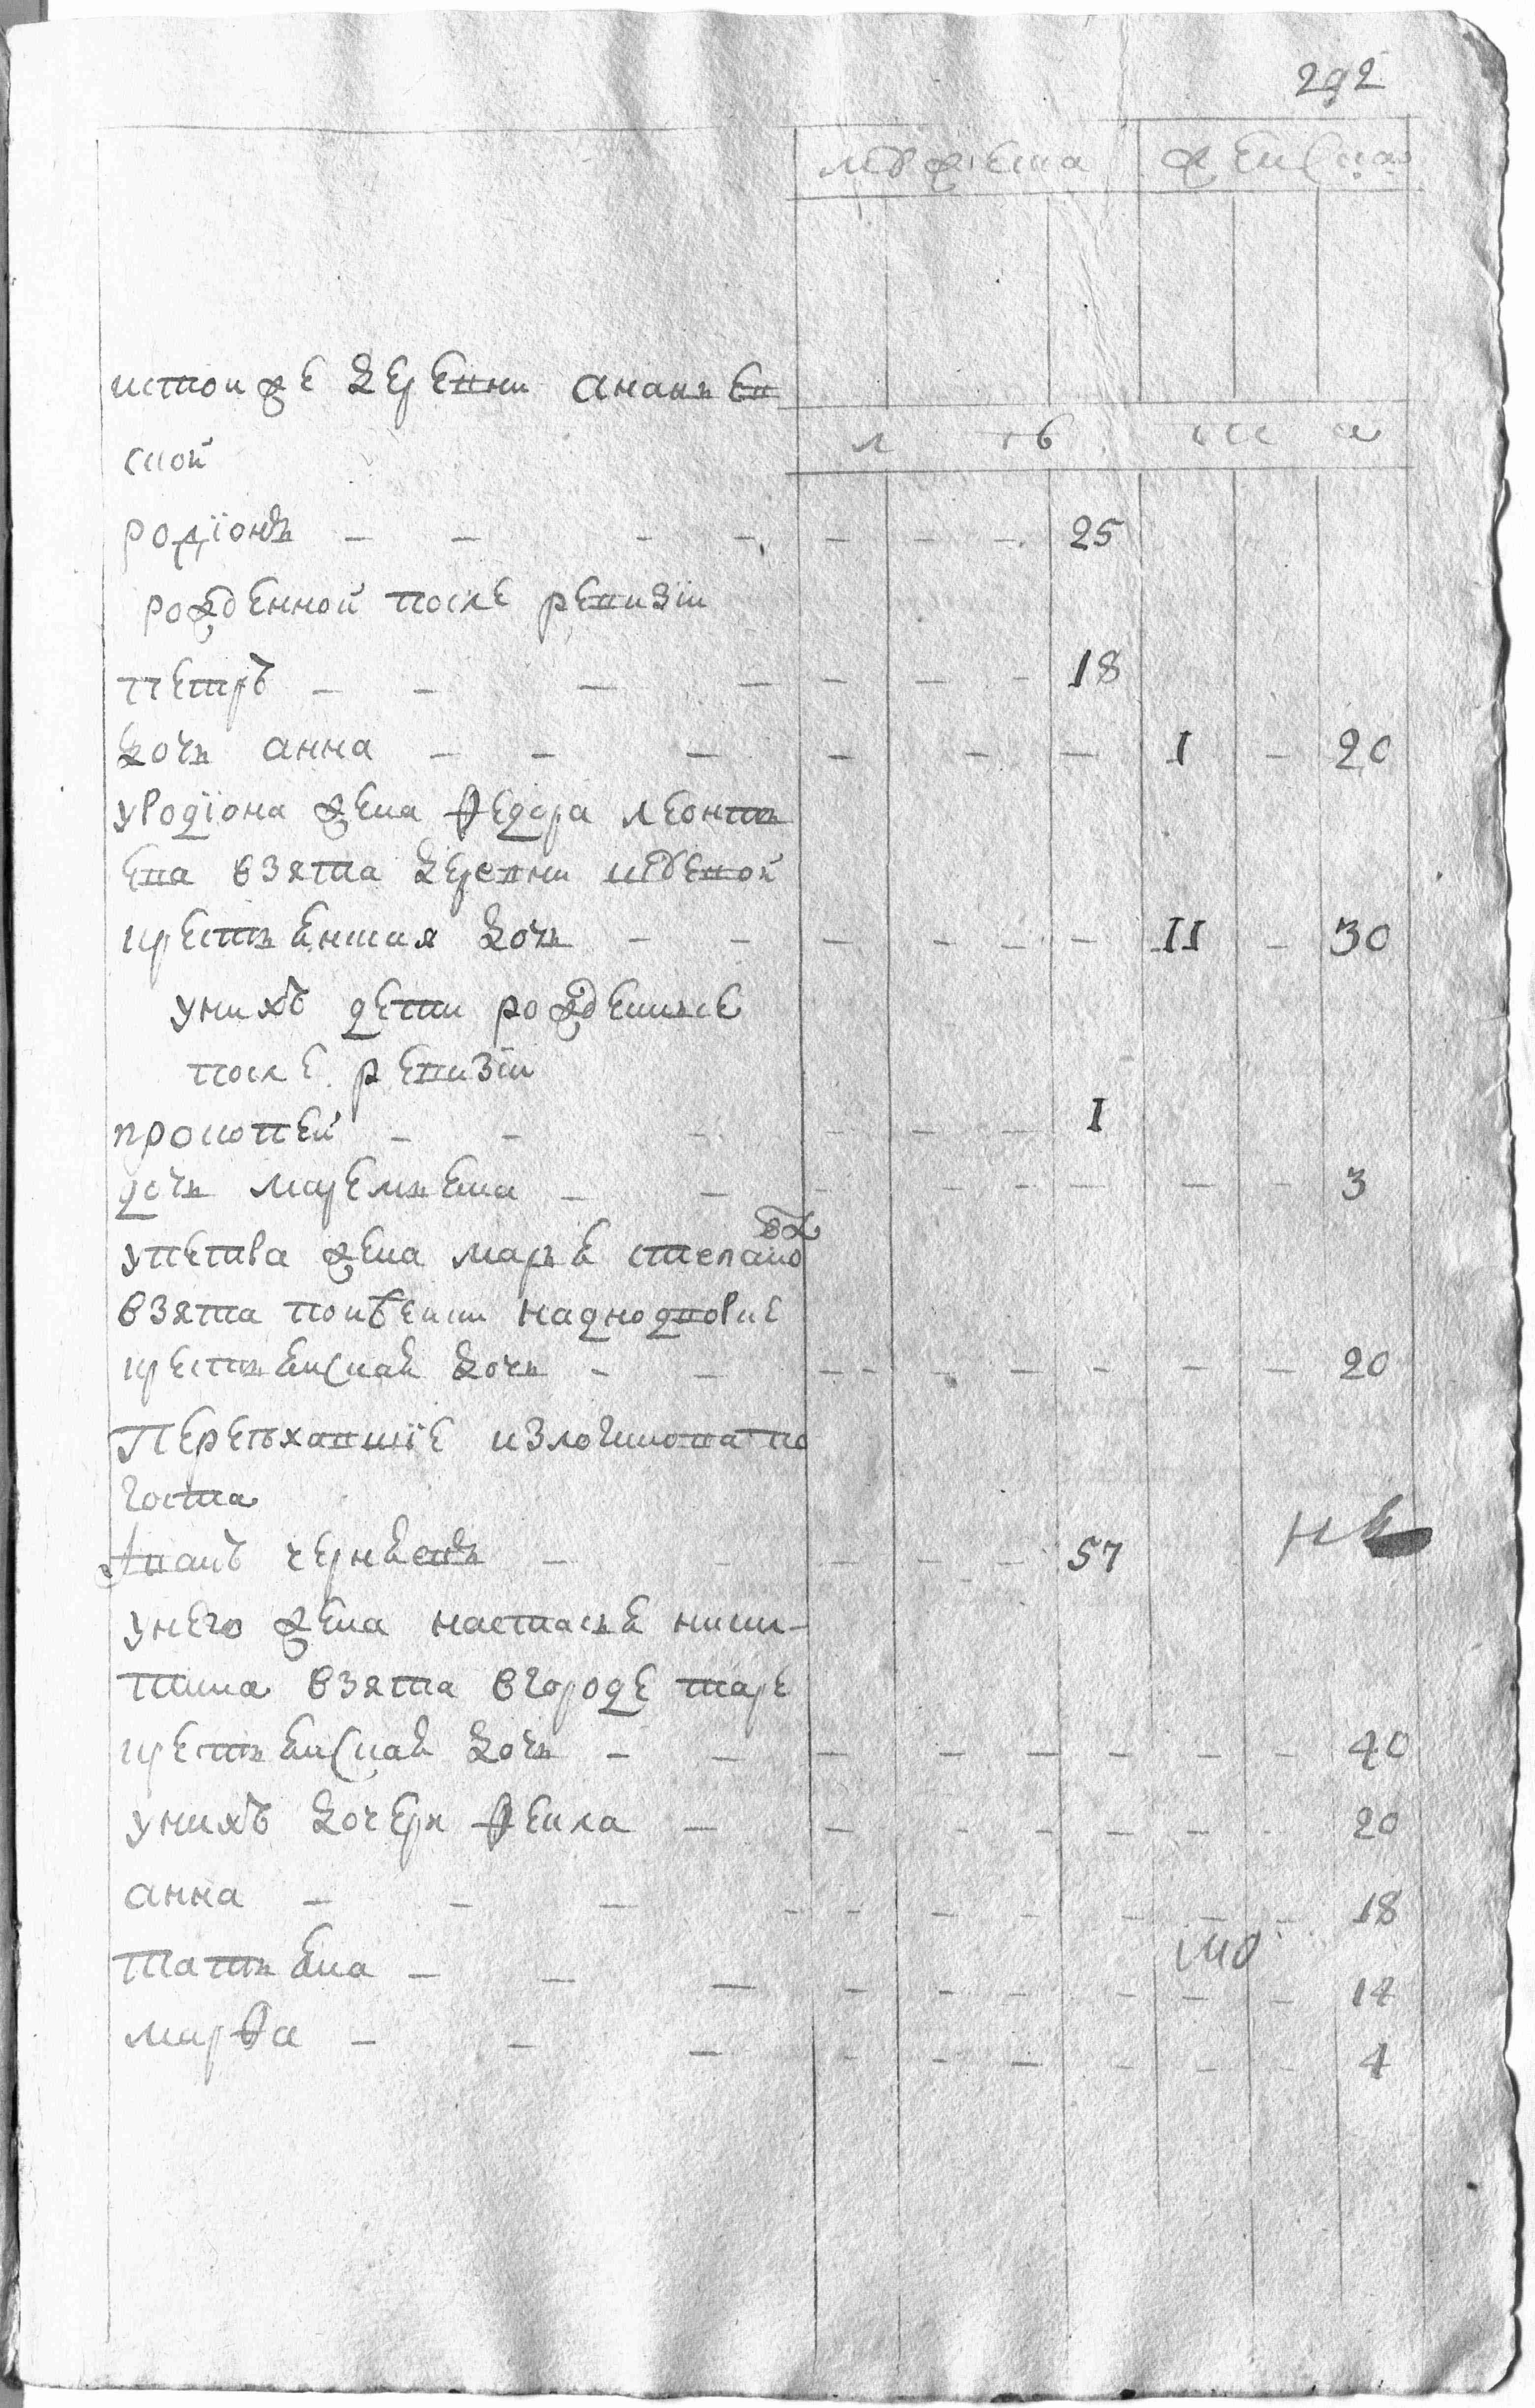 292
мужеска женска
истой же деревни ананьев
ской
л тъ ка
родїонъ 25
рожденной после ревизіи
петръ 18
дочь анна I 20
уродїона жена федора леонть
ева взята деревни
крестьянская дочь II 30
унихъ дети рожденные
после ревизіи
прокопей I
дочь маремьяна 3
упетра жена марья степано
ва
взята
крестьянская дочь 20
Переѣхавшїе излогинова по
госта
Иванъ черняевъ 57
унего жена настасья ники-
тина взята вгороде таре
крестьянская дочь 40
унихъ дочери фекла 20
анна 18
татьяна 14
марфа 4